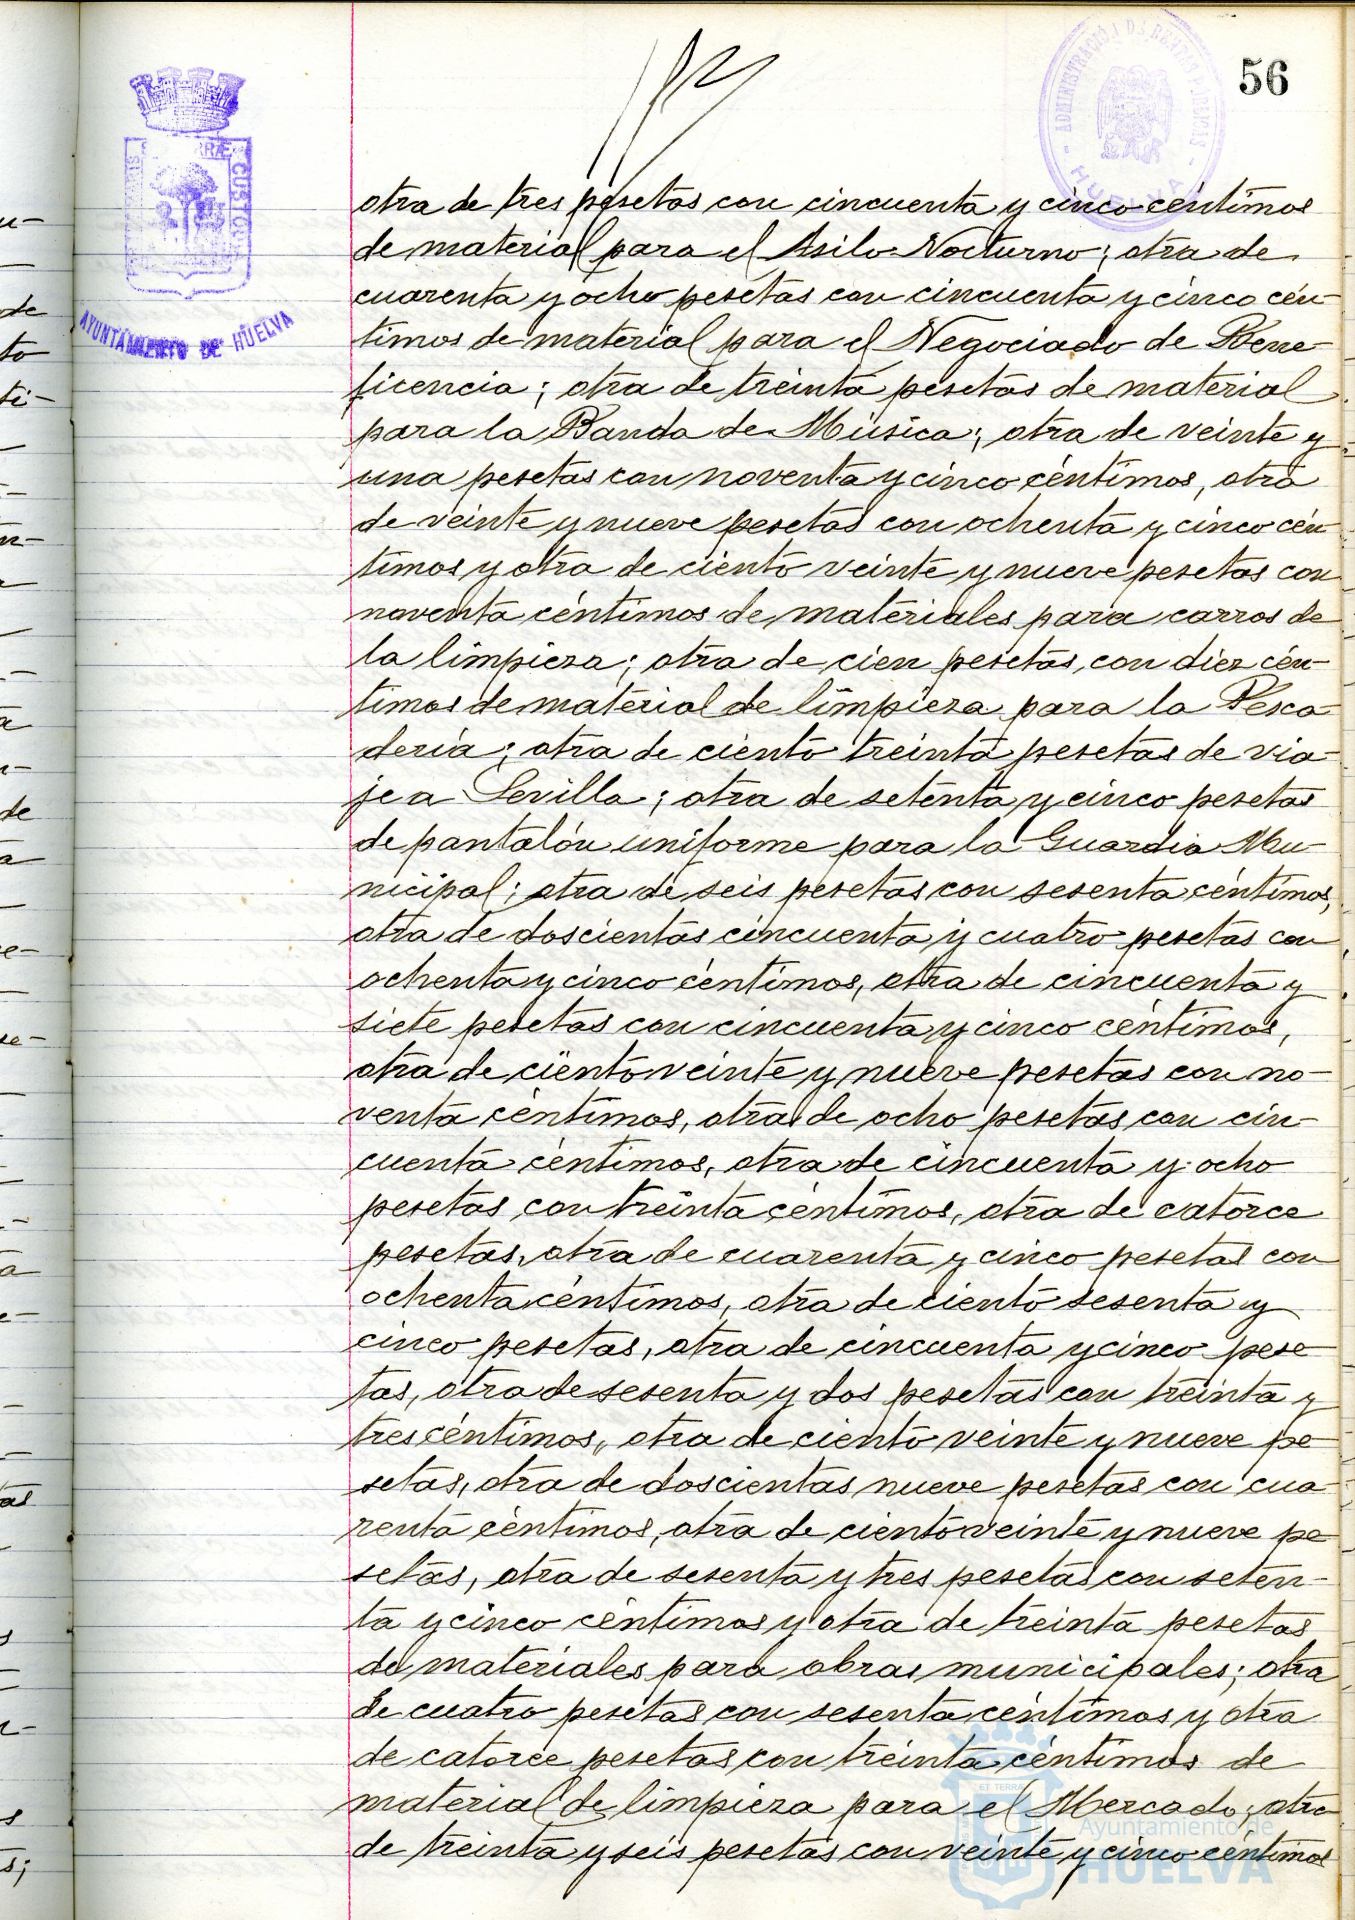 56
ADMINISTRACIÓN DE RENTAS PÚBLICAS
HUELVA
CUSTODIA
AYUNTAMIENTO DE HUELVA
otra de tres pesetas con cincuenta y cinco céntimos
de material para el Asilo Nocturno; otra de
cuarenta y ocho pesetas con cincuenta y cinco cén-
timos de material para el Negociado de Bene-
ficencia; otra de treinta pesetas de material
para la Banda de Música; otra de veinte y
una pesetas con noventa y cinco céntimos, otra
de veinte y nueve pesetas con ochenta y cinco cén-
timos y otra de ciento veinte y nueve pesetas con
noventa céntimos de materiales para carros de
la limpieza; otra de cien pesetas con diez cén-
timos de material de limpieza para la Pesca-
dería; otra de ciento treinta pesetas de via-
je a Sevilla; otra de setenta y cinco pesetas
de pantalón uniforme para la Guardia Mu-
nicipal; otra de seis pesetas con sesenta céntimos,
otra de doscientas cincuenta y cuatro pesetas con
ochenta y cinco céntimos, otra de cincuenta y
siete pesetas con cincuenta y cinco céntimos,
otra de ciento veinte y nueve pesetas con no-
venta céntimos, otra de ocho pesetas con cin-
cuenta céntimos, otra de cincuenta y ocho
pesetas con treinta céntimos, otra de catorce
pesetas, otra de cuarenta y cinco pesetas con
ochenta céntimos, otra de ciento sesenta y
cinco pesetas, otra de cincuenta y cinco pese-
tas, otra de sesenta y dos pesetas con treinta y
tres céntimos, otra de ciento veinte y nueve pe-
setas, otra de doscientas nueve pesetas con cua-
renta céntimos, otra de ciento veinte y nueve pe-
setas, otra de sesenta y tres pesetas con seten-
ta y cinco céntimos y otra de treinta pesetas
de materiales para obras municipales; otra
de cuatro pesetas con sesenta céntimos y otra
de catorce pesetas con treinta céntimos de
material de limpieza para el Mercado; otra
de treinta y seis pesetas con veinte y cinco céntimos
Ayuntamiento de
HUELVA